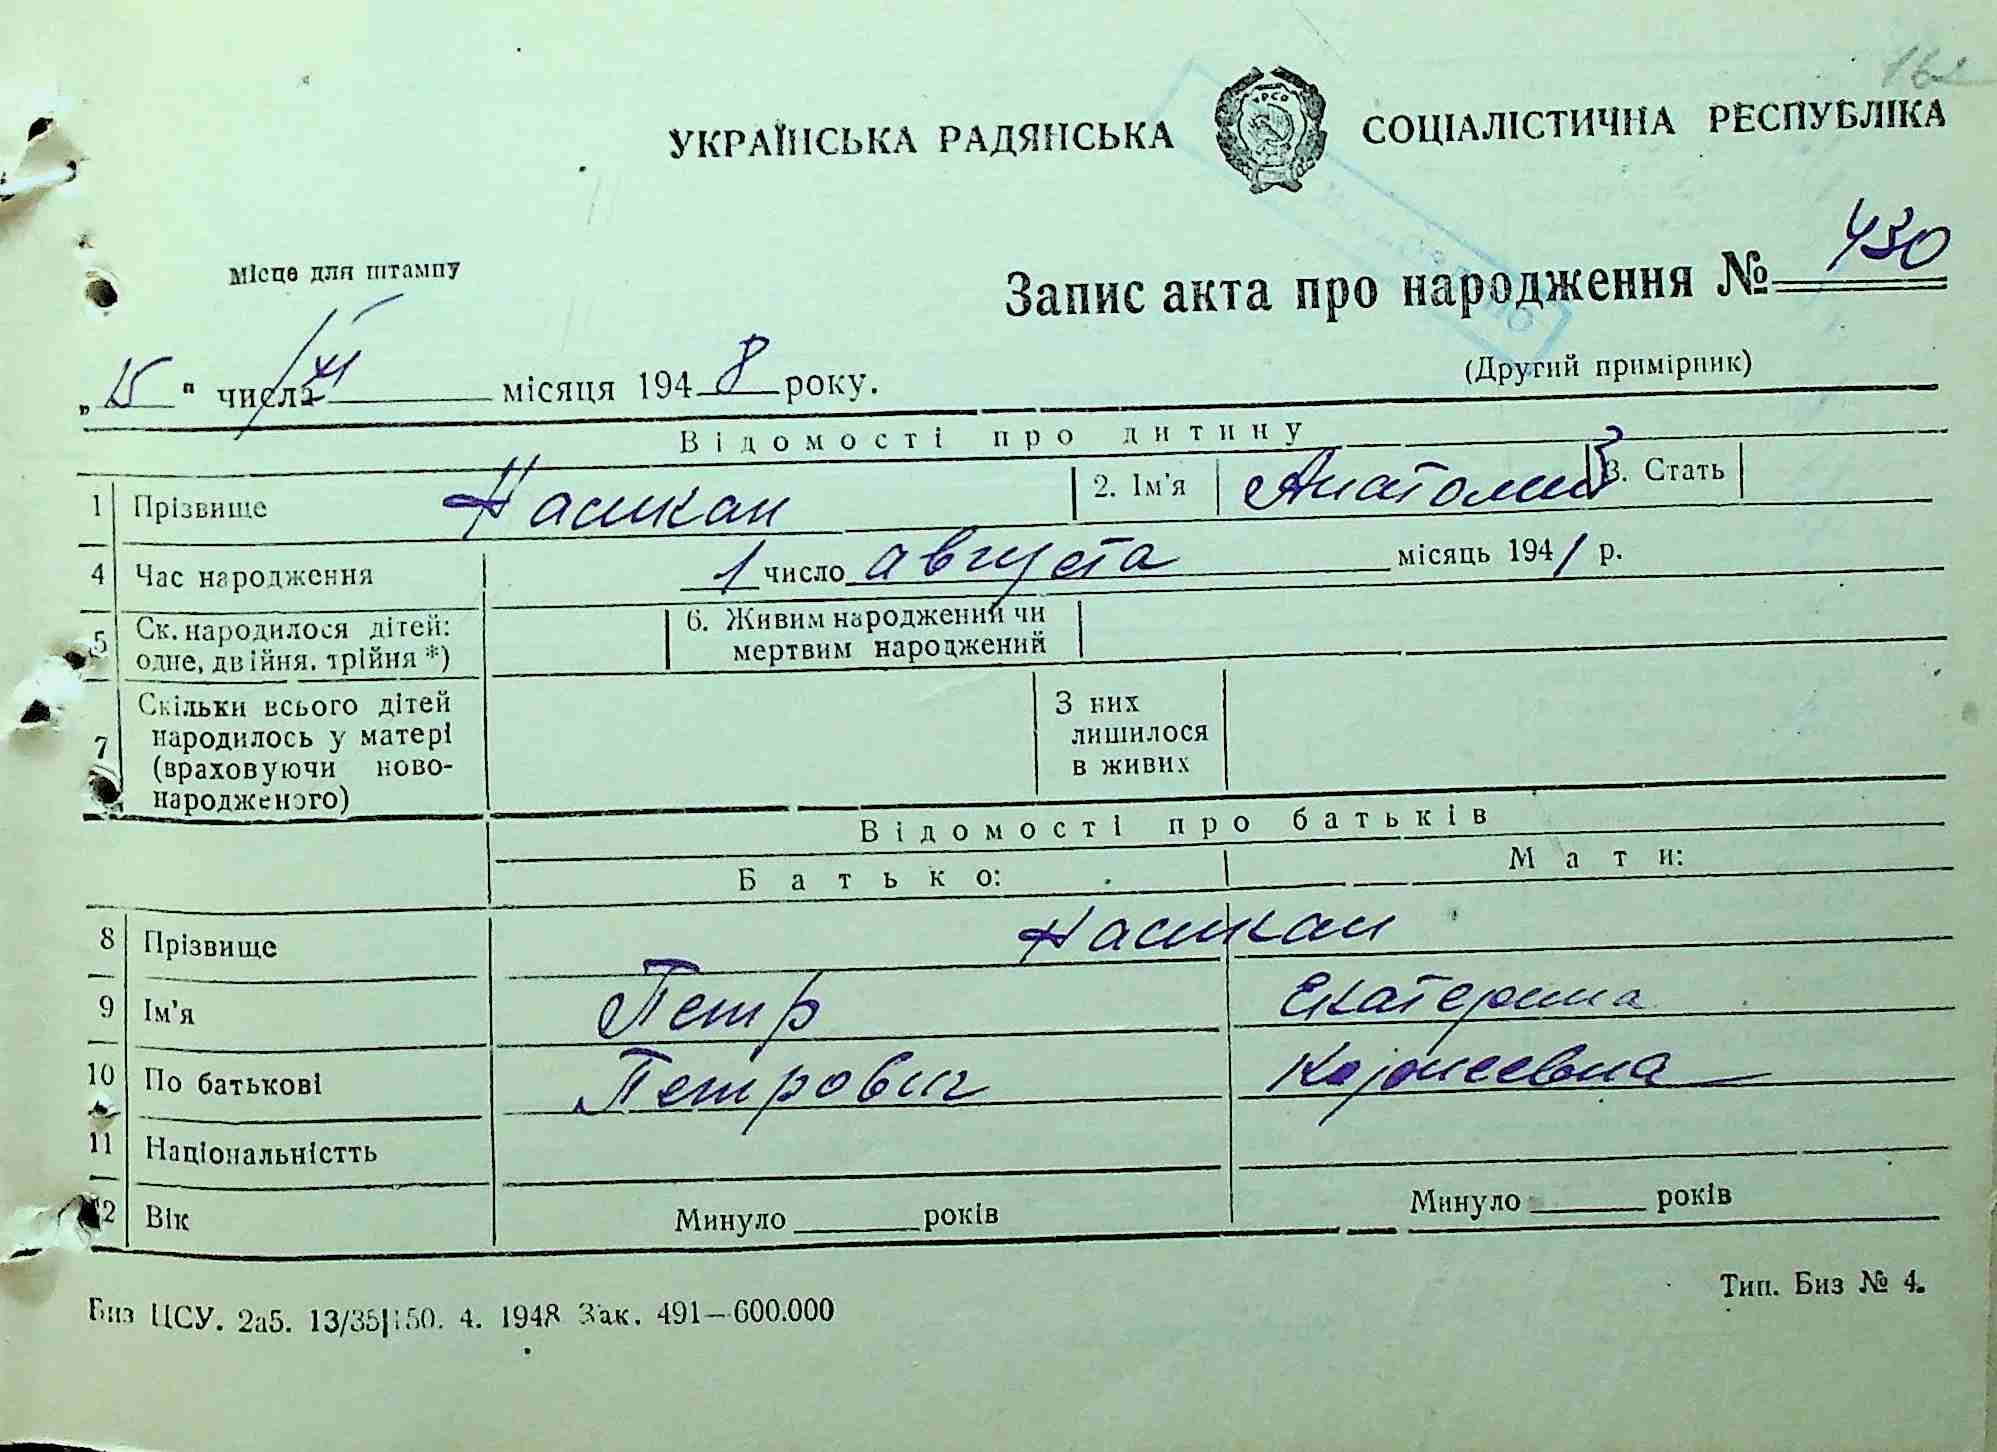 162
УКРАЇНСЬКА РАДЯНСЬКА СОЦІАЛІСТИЧНА РЕСПУБЛІКА
Місце для штампу
Запис акта про народження № 430
(Другий примірник)
„15" числа VI місяця 1948 року.
Відомості про дитину
1 Прізвище Насикан 2. Ім'я Анатолий 3. Стать
4 Час народження 1 число августа місяць 1941 р.
5 Ск. народилося дітей: одне, двійня, трійня *) 6. Живим народжений чи мертвим народжений
7 Скільки всього дітей народилось у матері (враховуючи новонародженого) З них лишилося в живих
Відомості про батьків
Батько: Мати:
8 Прізвище Насикан
9 Ім'я Петр Екатерина
10 По батькові Петрович
11 Національністть
12 Вік Минуло років Минуло років
Биз ЦСУ. 2а5. 13/35|150. 4. 1948 Зак. 491—600.000
Тип. Биз № 4.